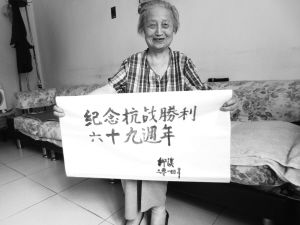 纪念抗战勝利
六十九週年
二零一四年